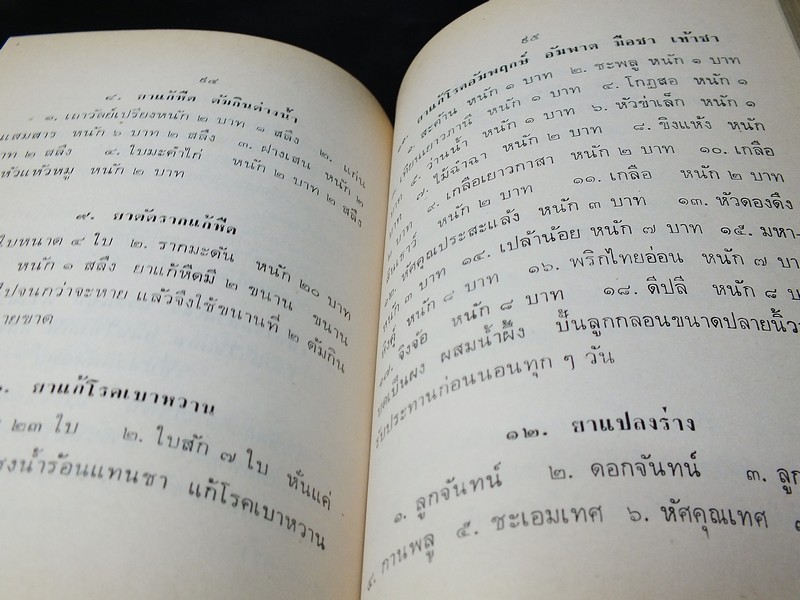 ๙๔
๘. ยาแก้หืด ต้มกินต่างน้ำ
๑. เถาวัลย์เปรียงหนัก ๒ บาท ๑ สลึง ๒. แก่น
แสมสาร หนัก ๖ บาท ๒ สลึง ๓. ฝางเสน หนัก ๒
บาท ๒ สลึง ๔. ใบมะคำไก่ หนัก ๒ บาท ๒ สลึง
หัวแห้วหมู หนัก ๒ บาท
๙. ยาตัดรากแก้หืด
ใบหนาด ๔ ใบ ๒. รากมะดัน หนัก ๒๐ บาท
หนัก ๑ สลึง ยาแก้หืดมี ๒ ขนาน ขนาน
ไปจนกว่าจะหาย แล้วจึงใช้ขนานที่ ๒ ต้มกิน
หายขาด
ยาแก้โรคเบาหวาน
๒๓ ใบ ๒. ใบสัก ๗ ใบ หั่นแค่
ชงน้ำร้อนแทนชา แก้โรคเบาหวาน
๙๕
ยาแก้โรคอัมพฤกษ์ อัมพาต มือชา เท้าชา
๑. สะค้าน หนัก ๑ บาท ๒. ชะพลู หนัก ๑ บาท
เทียนเยาวภาณี หนัก ๑ บาท ๔. โกฎสอ หนัก ๑
บาท ๕. ว่านน้ำ หนัก ๑ บาท ๖. หัวข่าเล็ก หนัก ๑
บาท ๗. ไม้ฉำฉา หนัก ๒ บาท ๘. ขิงแห้ง หนัก
๒ บาท ๙. เกลือเยาวกาสา หนัก ๒ บาท ๑๐. เกลือ
สินเธาว์ หนัก ๒ บาท ๑๑. เกลือ หนัก ๒ บาท
๑๒. หัศคุณประสะแล้ง หนัก ๓ บาท ๑๓. หัวดองดึง
หนัก ๓ บาท ๑๔. เปล้าน้อย หนัก ๗ บาท ๑๕. มหา-
หิงคุ์ หนัก ๘ บาท ๑๖. พริกไทยอ่อน หนัก ๗ บาท
๑๗. จิงจ้อ หนัก ๘ บาท ๑๘. ดีปลี หนัก ๘ บ
บดเป็นผง ผสมน้ำผึ้ง ปั้นลูกกลอนขนาดปลายนิ้ว
รับประทานก่อนนอนทุก ๆ วัน
๑๒. ยาแปลงร่าง
๑. ลูกจันทน์ ๒. ดอกจันทน์ ๓. ลูก
๔. กานพลู ๕. ชะเอมเทศ ๖. หัศคุณเทศ